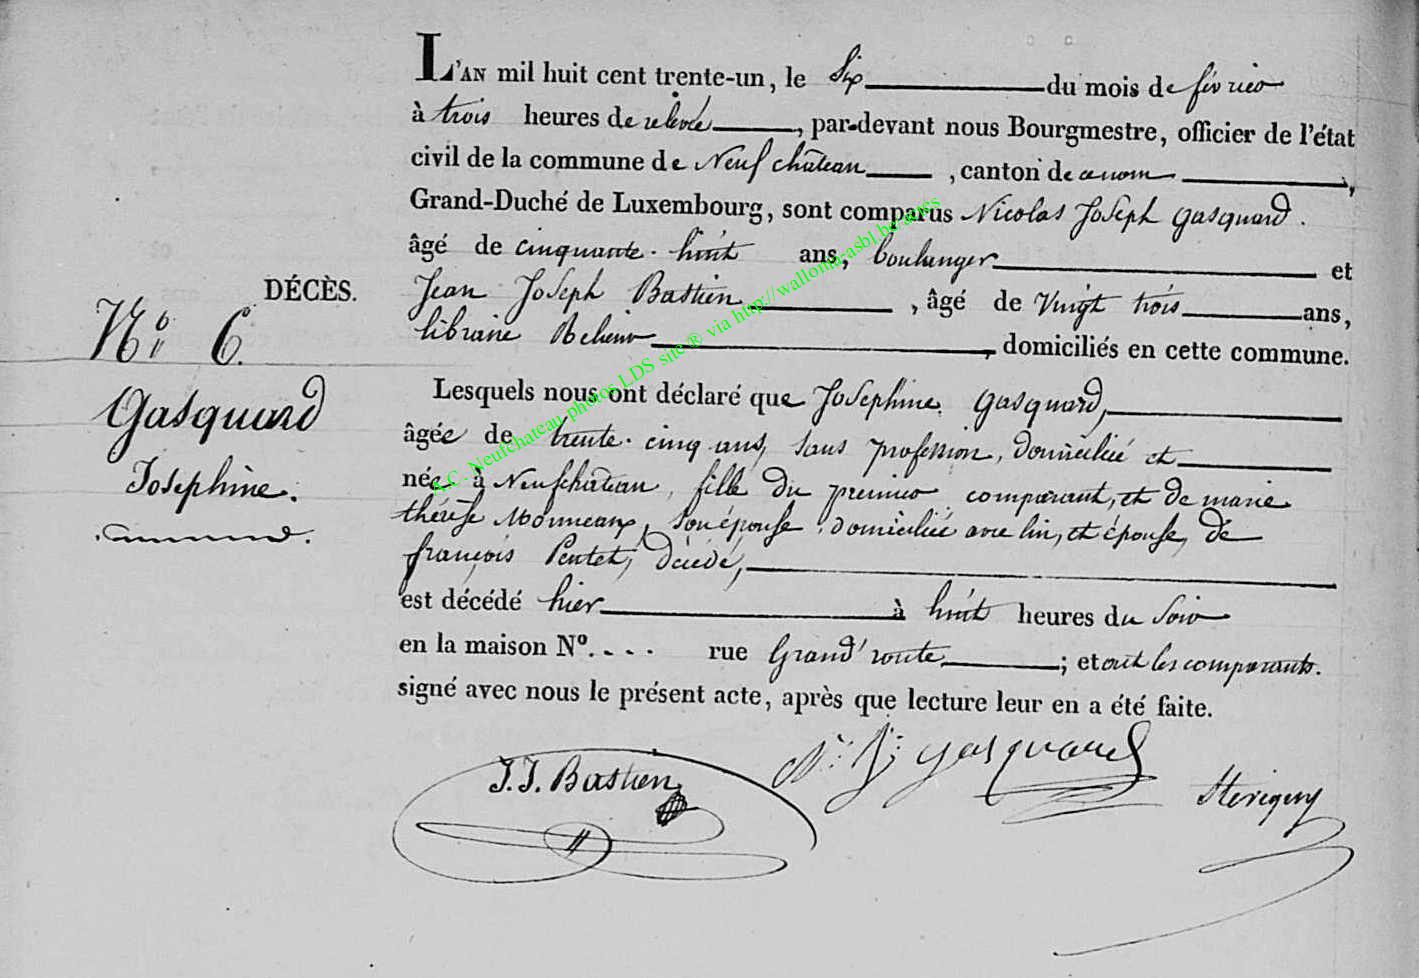 L'AN mil huit cent trente-un, le Six du mois de février
à trois heures de relevée, par-devant nous Bourgmestre, officier de l'état
civil de la commune de Neufchâteau, canton de ce nom,
Grand-Duché de Luxembourg, sont comparus Nicolas Joseph Gasquard.
âgé de cinquante-huit ans, boulanger et
Jean Joseph Bastien, âgé de Vingt trois ans,
libraire Relieur, domiciliés en cette commune.
DÉCÈS.
No. 6.
Gasquard
Josephine.
Lesquels nous ont déclaré que Josephine Gasquard,
âgée de trente-cinq ans, sans profession, domiciliée et
née à Neufchâteau, fille du premier comparant, et de marie
thérése Monneaux, son épouse, domiciliée avec lui, et épouse, de
françois Pentet, décédé,
est décédé hier à huit heures du Soir
en la maison No. . . . rue Grand'route; et ont les comparants.
signé avec nous le présent acte, après que lecture leur en a été faite.
J. J. Bastien
N: J: gasquard
A.C. Neufchateau photos LDS site ® via http://wallonia-asbl.be/actes